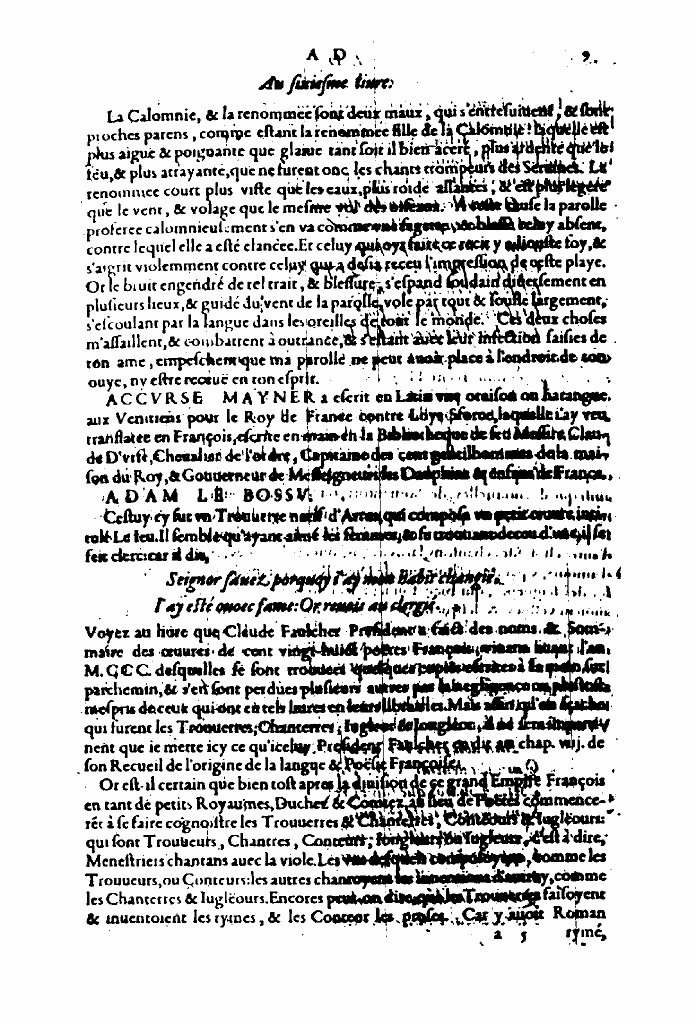 A D 9.
Au sixiesme liure:
La Calomnie, & la renommee sont deux maux, qui s'entresuiuent, & sont
proches parens, comme estant la renommee fille de la Calomnie: laquelle est
plus aiguë & poignante que glaiue tant soit il bien aceré, plus ardente que le
feu, & plus attrayante, que ne furent onc les chants trompeurs des Serenes. La
renommee court plus viste que les eaux, plus roide & est plus legere
que le vent, & volage que le mesme vol des oiseaux. la parolle
proferee calomnieusement s'en va celuy absent,
contre lequel elle a esté elancée. Et celuy qui oyt faire ce recit y adiouste foy, &
s'aigrit violemment contre celuy qui a desia receu l'impression de ceste playe.
Or le bruit engendré de tel trait, & blessure, s'espand soudain diuersement en
plusieurs lieux, & guidé du vent de la parolle, vole par tout & souffle largement,
s'escoulant par la langue dans les oreilles de tout le monde. Ces deux choses
m'assaillent, & combattent à outrance, & s'estant auec leur infection saisies de
ton ame, empeschent que ma parolle ne peut auoir place à l'endroit de ton
ouye, ny estre receuë en ton esprit.
ACCVRSE MAYNER a escrit en Latin vne oraison ou harangue
aux Venitiens pour le Roy de France contre Loys Sforce, laquelle i'ay veu
translatee en François, escrite en main en la Bibliotheque de feu Messire Clau-
de D'vrfé, Cheualier de l'ordre, Capitaine des cent gentilhommes de la mai-
son du Roy, & Gouuerneur de Messeigneurs les Dauphins & enfans de France.
ADAM LE BOSSV.
Cestuy cy fut vn Trouuerre natif d'Arras, qui composa vn petit œuure, inti-
tulé Le Ieu. Il semble qu'ayant aimé les femmes,
feit clerc: car il dit,
Seignor sauez porquay i'ay mon habit changié.
I'ay esté auoec fame: Or reuois au clergié.
Voyez au liure que Claude Fauchet President a faict des noms & Som-
maire des œuures de cent vingt huict poëtes François, viuans auant l'an
M. CCC. desquelles se sont trouuees quelques copies escrites à la main, sur
parchemin, & s'en sont perdues plusieurs autres par la negligence ou plustost
mespris de ceux qui ont eu tels liures en leurs librairies. Mais affin qu'on sçache
qui furent les Trouuerres, Chanterres, Iugleor & Iongleor, il ne sera imperti-
nent que ie mette icy ce qu'iceluy President Fauchet en dit au chap. viij. de
son Recueil de l'origine de la langue & Poësie Françoise.
Or est-il certain que bien tost apres la diuision de ce grand Empire François
en tant de petits Royaumes, Duchez & Comtez, au lieu de Poëtes commence-
rét à se faire cognoistre les Trouuerres & Chanterres, Conteours & Iugleours:
qui sont Trouueurs, Chantres, Conteurs, Iongleurs ou Iugleurs, c'est à dire,
Menestriers chantans auec la viole. Les vns desquels composoyent, comme les
Trouueurs, ou Conteurs: les autres chantoyent les inuentions d'autruy, comme
les Chanterres & Iugleours. Encores peut on dire, que les Trouuerres faisoyent
& inuentoient les rymes, & les Conteurs les proses. Car y auoit Roman
a 5 rymé,